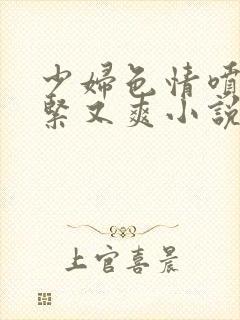 少婦色情噴
緊又爽小說
上官喜晨